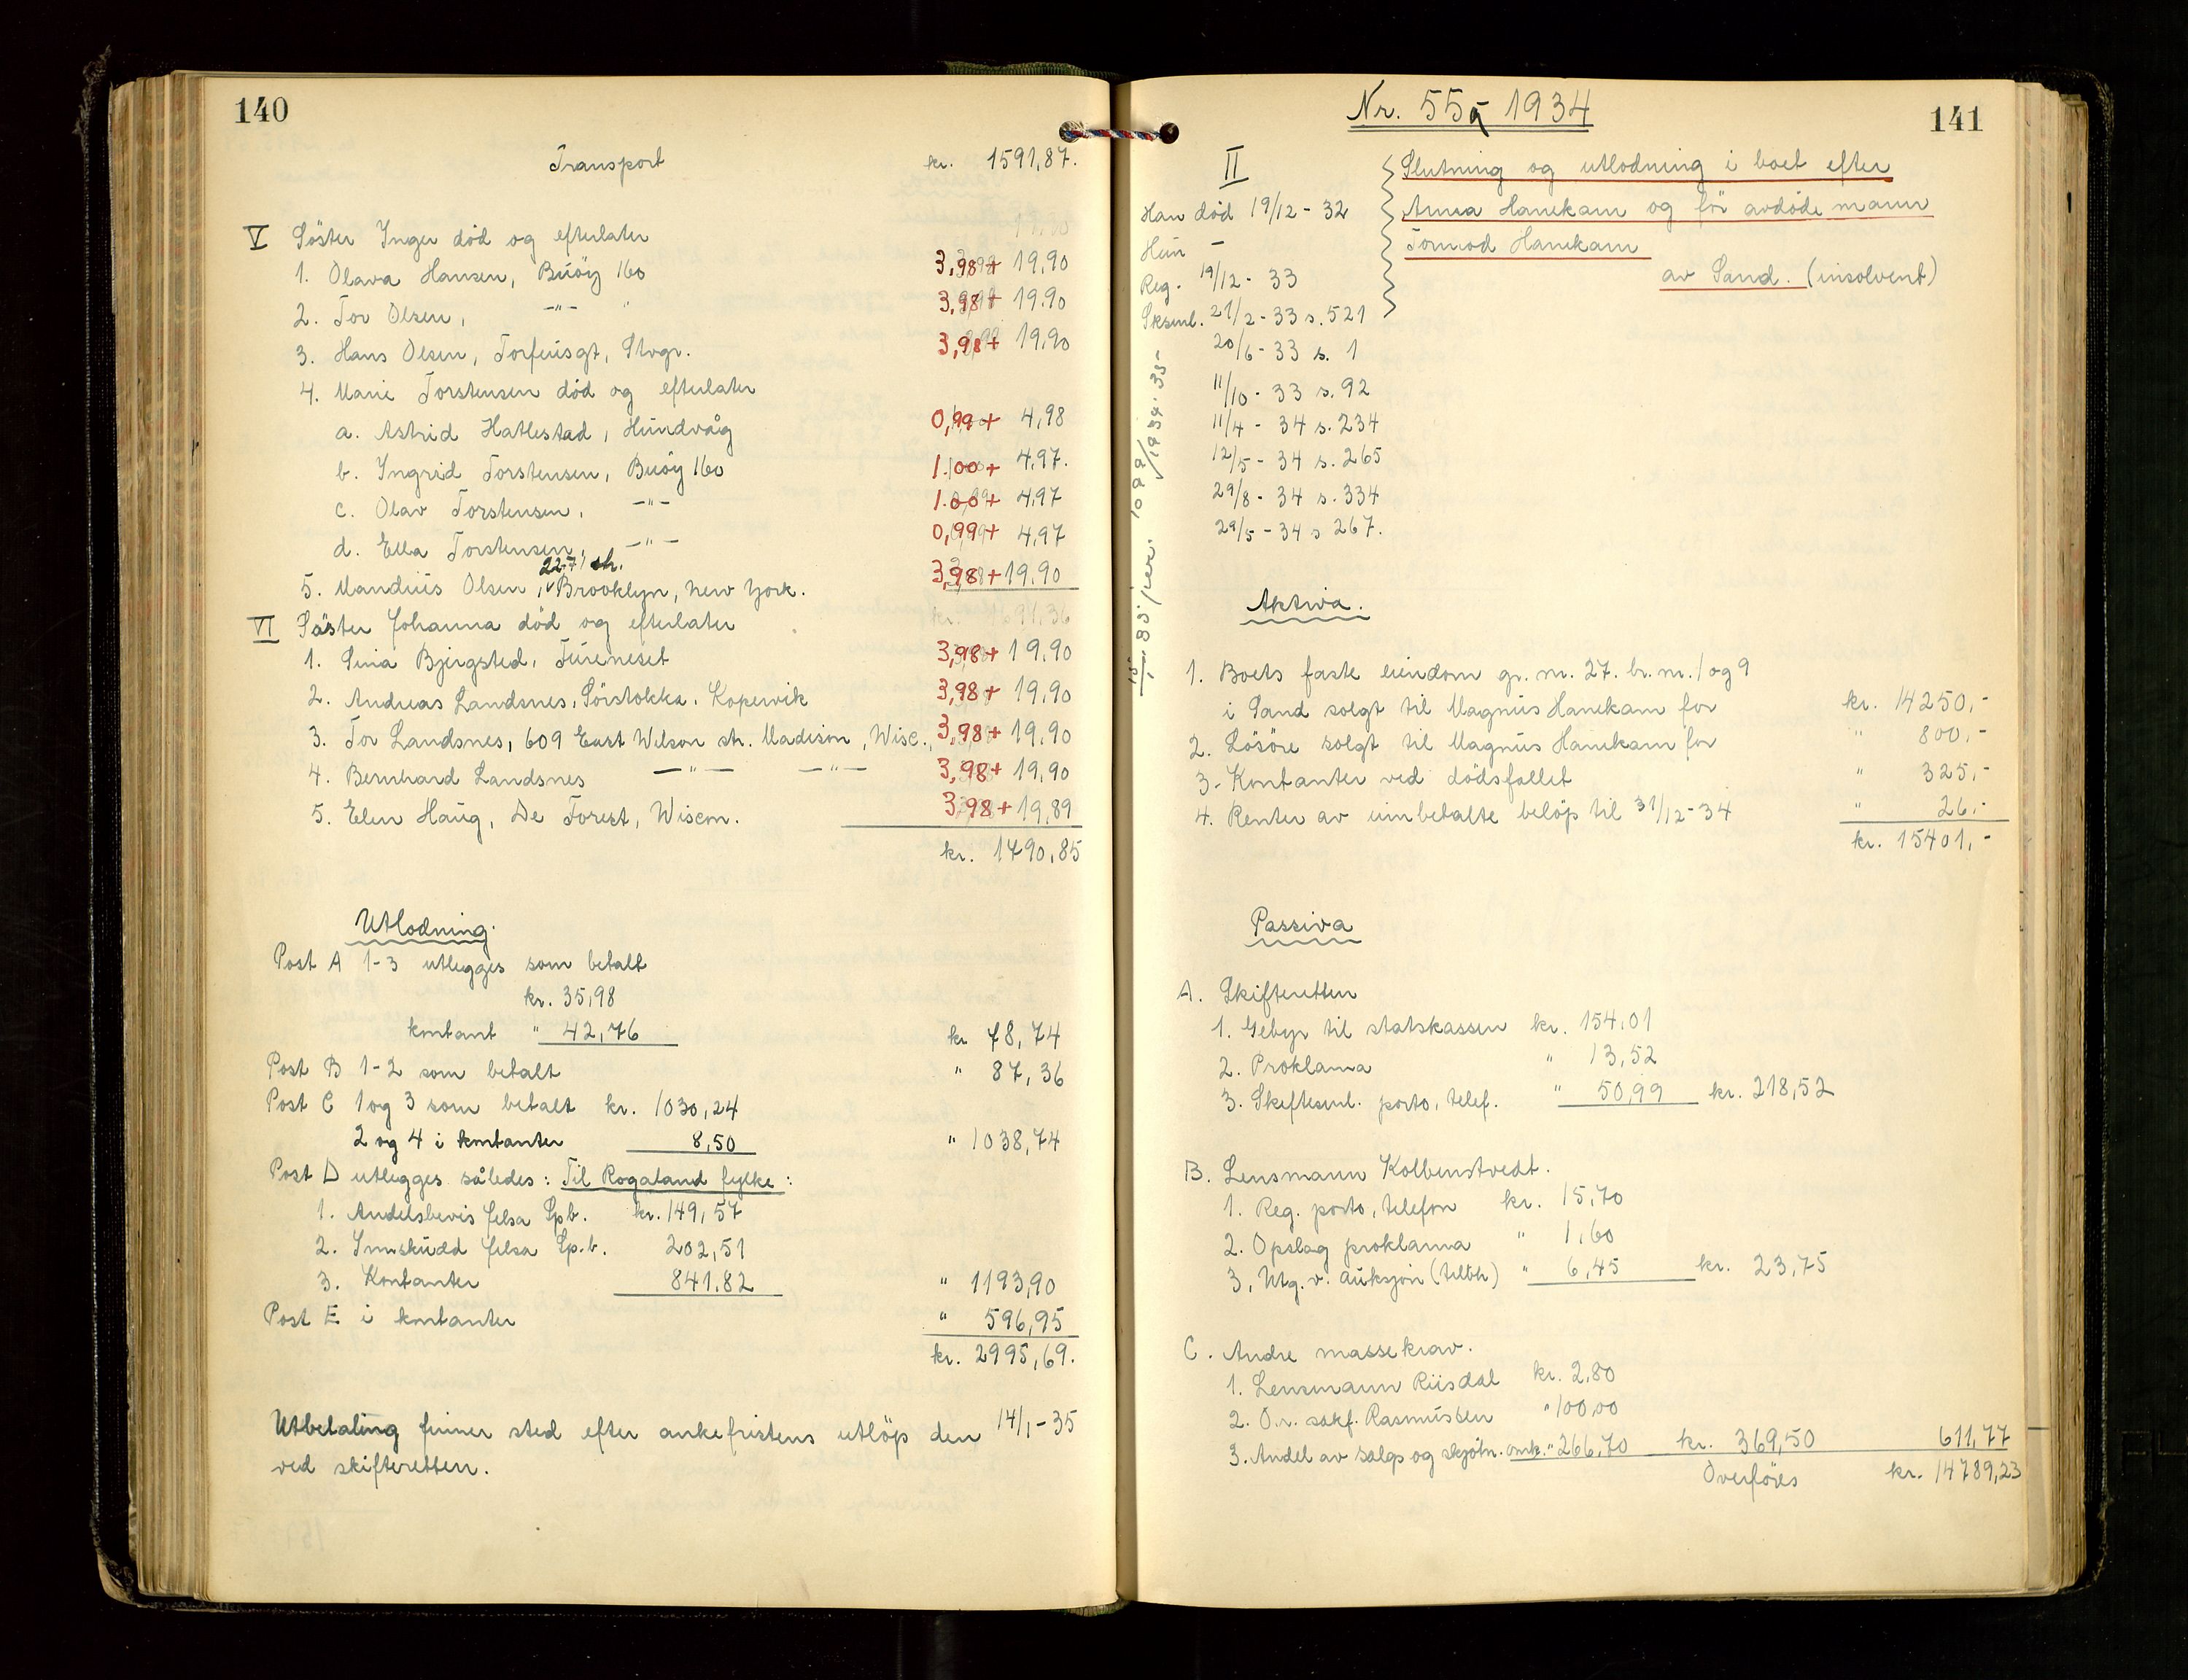 140
Transport kr. 1591,87.
V Söster Inger död og efterlater
1. Olava Hansen, Buöy 160 3,98+ 19,90
2. Tor Olsen, -"- " 3,98+ 19.90
3. Hans Olsen, Torfeusgt, Stvgr. 3,98+ 19.90
4. Marie Torstensen död og efterlater
a. Astrid Hatlestad, Hundvåg 0,99+ 4,98
b. Ingrid Torstensen, Buöy 160 1.00+ 4,97.
c. Olav Torstensen, -"- 1.00+ 4,97
d. Ella Torstensen, -"- 0,99+ 4,97
5. Mandius Olsen, 22-71 str. Brooklyn, New York. 3,98+ 19.90
VI Söster Johanna död og efterlater
1. Sina Bjergsted, Tureneset 3,98+ 19.90
2. Andreas Landsnes, Sörstokke, Kopervik 3,98+ 19,90
3. Tor Landsnes, 609 East Wilson str. Madison, Wisc., 3,98+ 19.90
4. Bernhard Landsnes -"- -"- 3,98+ 19,90
5. Elen Haug, De Forest, Wiscon. 3,98+ 19,89
kr. 1790,85
Utlodning.
Post A 1-3 utlegges som betalt
kr. 35,98
kontant " 42,76 kr 78,74
Post B 1-2 som betalt " 87,36
Post C 1 og 3 som betalt kr. 1030,24
2 og 4 i kontanter 8,50 " 1038,74
Post D utlegges således: Til Rogaland fylke:
1. Andelsbevis Jelsa Spb. kr. 149,57
2. Innskudd Jelsa Sp.b. 202,51
3. Kontanter 841.82 " 1193,90
Post E i kontanter " 596,95
kr. 2995,69.
Utbetaling finner sted efter ankefristens utlöp den 14/1-35
ved skifteretten.
141
Nr. 55a 1934
II
Slutning og utlodning i boet efter
Anna Hanekam og för avdöde mann
Tormod Hanekam
av Sand. (insolvent)
Han död 19/12-32
Hun -
Reg. 19/12-33
Sksml. 21/2-33 s. 521
20/6-33 s. 1
11/10-33 s. 92
11/4-34 s. 234
12/5-34 s. 265
29/8-34 s. 334
29/5-34 s 267.
Aktiva.
1. Boets faste eiendom gr. nr. 27. br. nr. 1 og 9
i Sand solgt til Magnus Hanekam for kr. 14250,-
2. Lösöre solgt til Magnus Hanekam for " 800,-
3. Kontanter ved dödsfallet " 325,-
4. Renter av innbetalte belöp til 31/12-34 " 26.-
kr. 15401,-
Passiva
A. Skifteretten
1. Gebyr til statskassen kr. 154,01
2. Proklama " 13,52
3. Skiftesml. porto, telef. " 50,99 kr. 218,52
B. Lensmann Kolbenstvedt.
1. Reg. porto, telefon kr. 15,70
2. Opslag proklama " 1,60
3. Utg. v. auksjon (tilbh) " 6,45 kr. 23,75
C. Andre massekrav.
1. Lensmann Riisdal kr. 2,80
2. O.r. sakf. Rasmussen " 100,00
3. Andel av salgs og skjötn. omk. " 266,70 kr. 369,50 611,77
Overföres kr. 14789,23